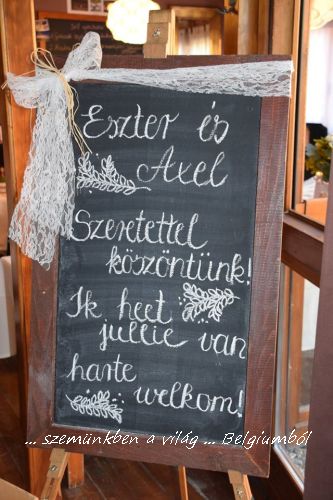 Eszter és
Axel
Szeretettel
köszöntünk!
Ik heet
jullie van
harte
welkom!
... szemünkben a világ ... Belgiumból